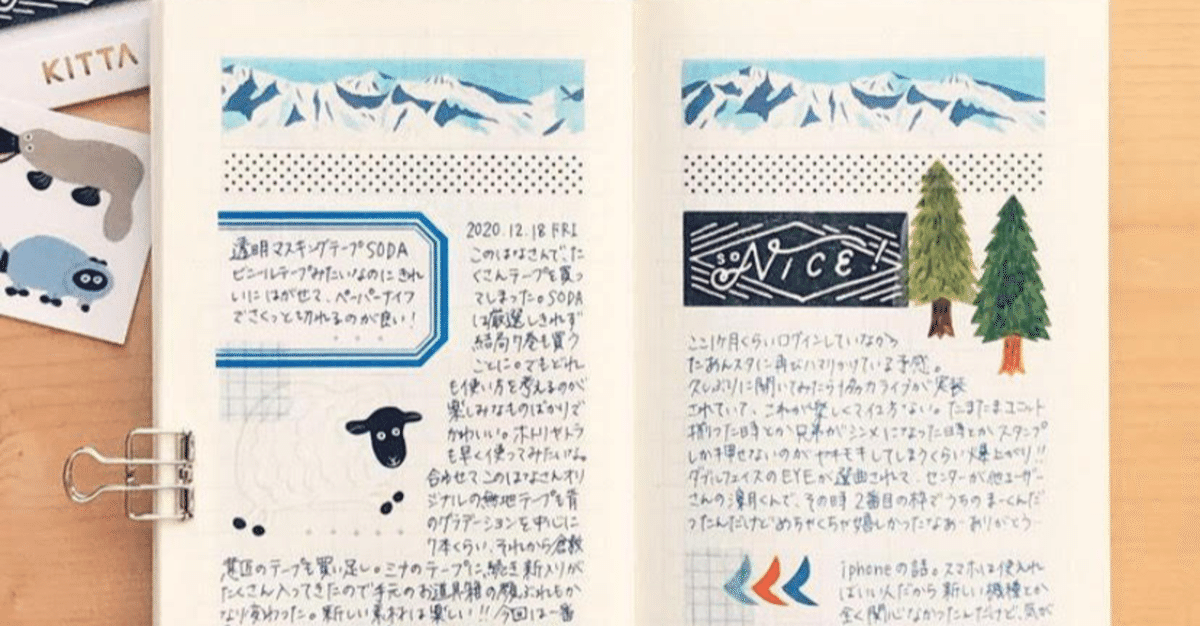 KITTA
透明マスキングテープSODA
ビニールテープみたいなのにきれ
いにはがせて、ペーパーナイフ
でさくっと切れるのが良い！
2020.12.18 FRI
このはなさんで、た
くさんテープを買っ
てしまった。SODA
は厳選しきれず
結局7巻も買う
ことに。でもどれ
も使い方を考えるのが
楽しみなものばかりで
かわいい。ホトリヤトラ
も早く使ってみたいな。
合わせてこのはなさんオリ
ジナルの無地テープも青
のグラデーションを中心に
7本くらい、それから倉敷
意匠のテープを買い足し。ミナのテープに、続き新入りが
たくさん入ってきたので手元のお道具箱の顔ぶれもか
なり変わった。新しい素材は楽しい!!今回は一番
SO NICE!
ここ1ヶ月くらいログインしていなかっ
たあんスタに再びハマりかけている予感。
久しぶりに開いてみたら協力ライブが実装
されていて、これが楽しくてイコ方ない。たまたまユニット
揃った時とか兄弟がシンメになった時とかスタンプ
しか押せないのがヤキモキしてしまうくらい爆上がり!!
ダブルフェイスのEYEが選曲されて、センターが他ユーザー
さんの深月くんで、その時2番目の枠でうちのまーくんだ
ったんだけどめちゃくちゃ嬉しかったなあーありがとう…
iphoneの話。スマホは使入れ
ばいい人だから新しい機種とか
全く関心なかったんだけど、気が